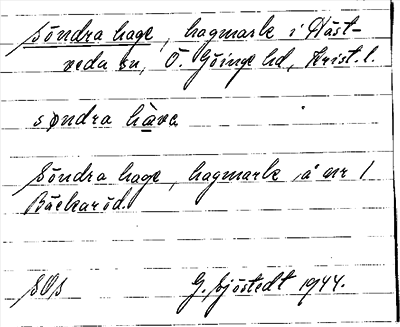 Söndra hage, hagmark i Häst-
veda sn, Ö. Göinge hd, Krist. l.
søndra hava
Söndra hage, hagmark å nr 1
Bäckaröd.
SOS G. Sjöstedt 1944.